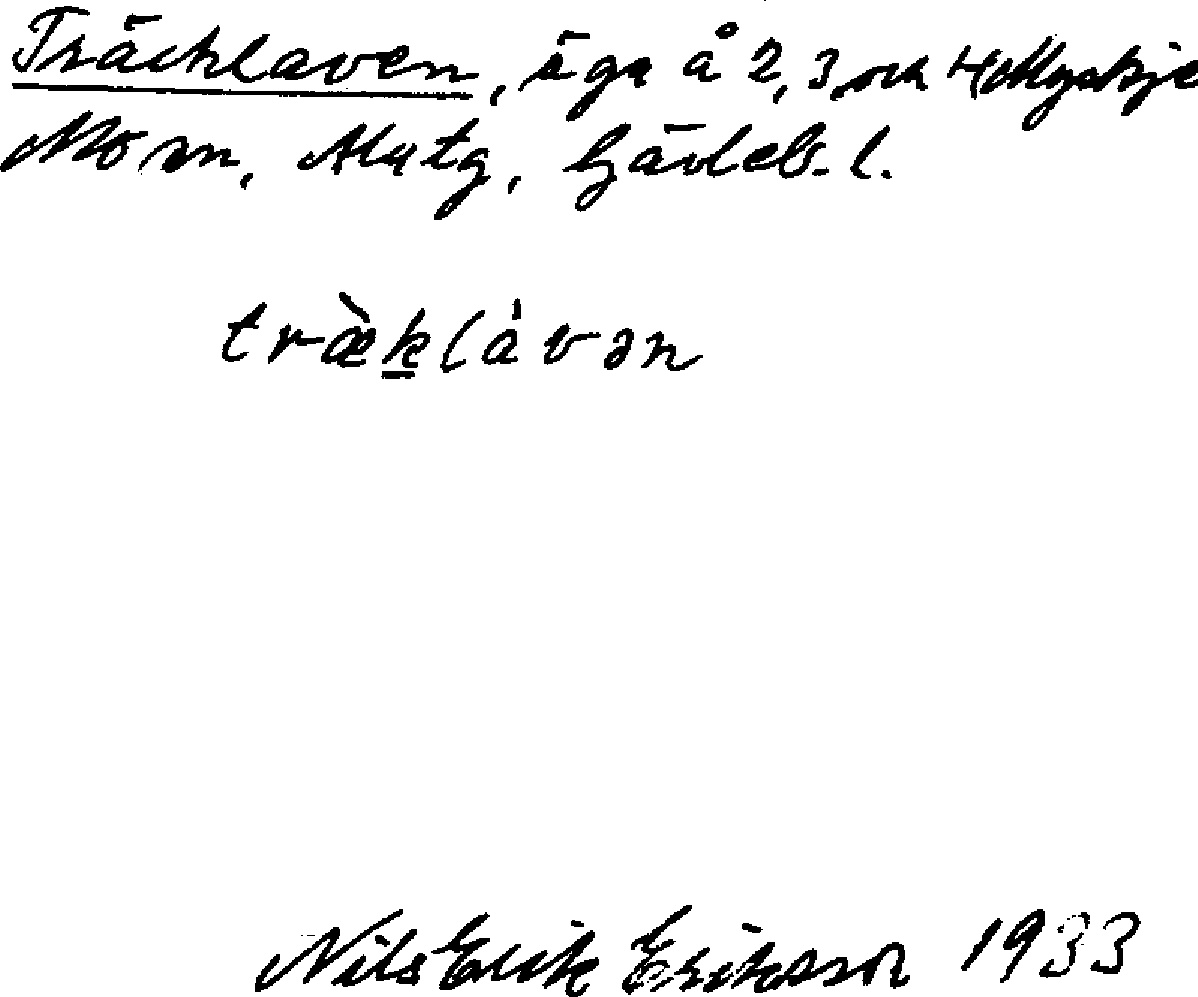 Träcklaven, äga å 2, 3 och 4 Myskje
Mo sn, Ala tg, Gävleb. l.
træ̀klàvən
Nils Erik Eriksson 1933